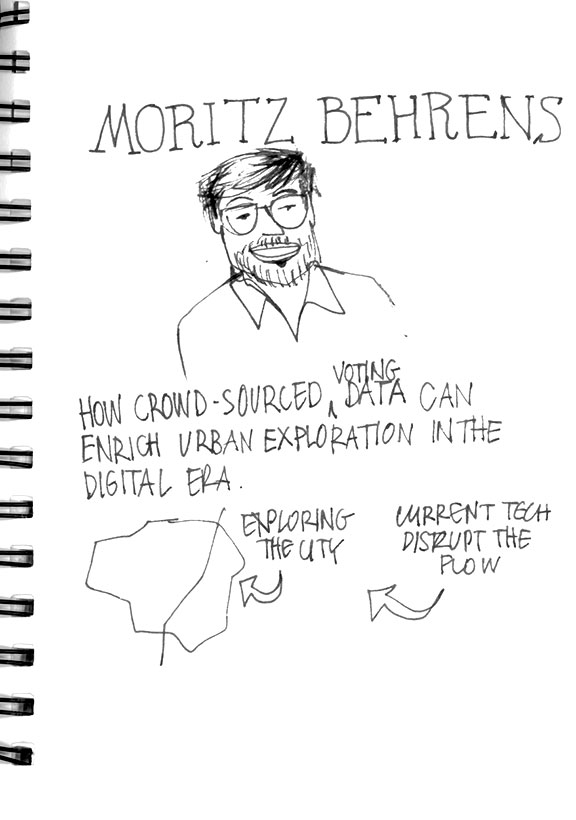 MORITZ BEHRENS
HOW CROWD-SOURCED VOTING DATA CAN
ENRICH URBAN EXPLORATION IN THE
DIGITAL ERA.
EXPLORING
THE CITY
CURRENT TECH
DISRUPT THE
FLOW